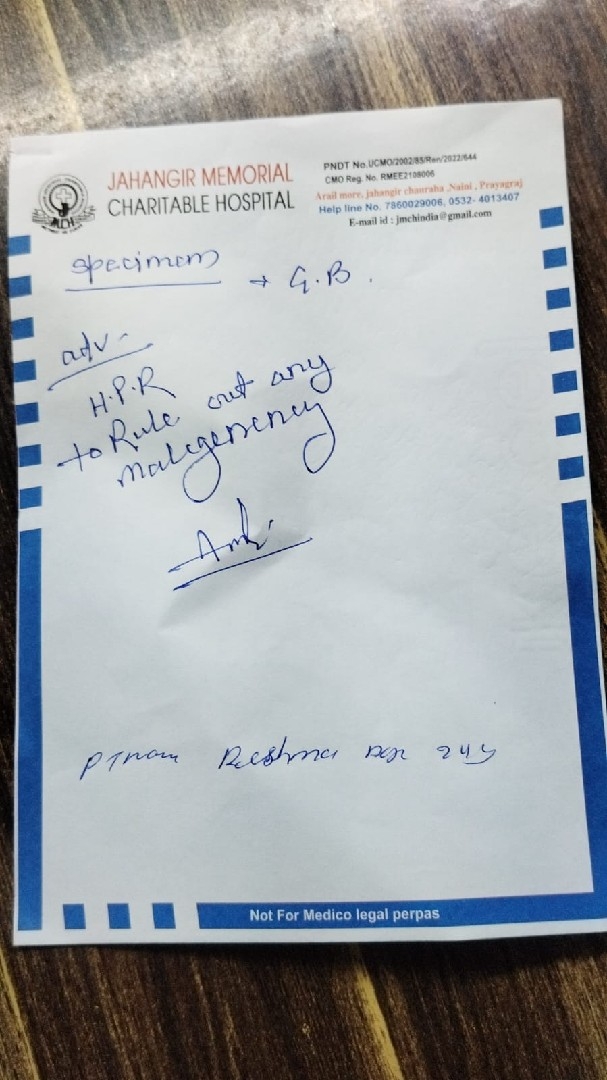 JAHANGIR MEMORIAL
CHARITABLE HOSPITAL
PNDT No.UCMO/2002/85/Ren/2022/644
CMO Reg. No. RMEE2108006
Arail more, jahangir chauraha ,Naini , Prayagraj
Help line No. 7860029006, 0532- 4013407
E-mail id : jmchindia@gmail.com
specimem → G.B.
adv-
H.P.R
to Rule out any
malegenency
PT nam Reshma age 24y
Not For Medico legal perpas